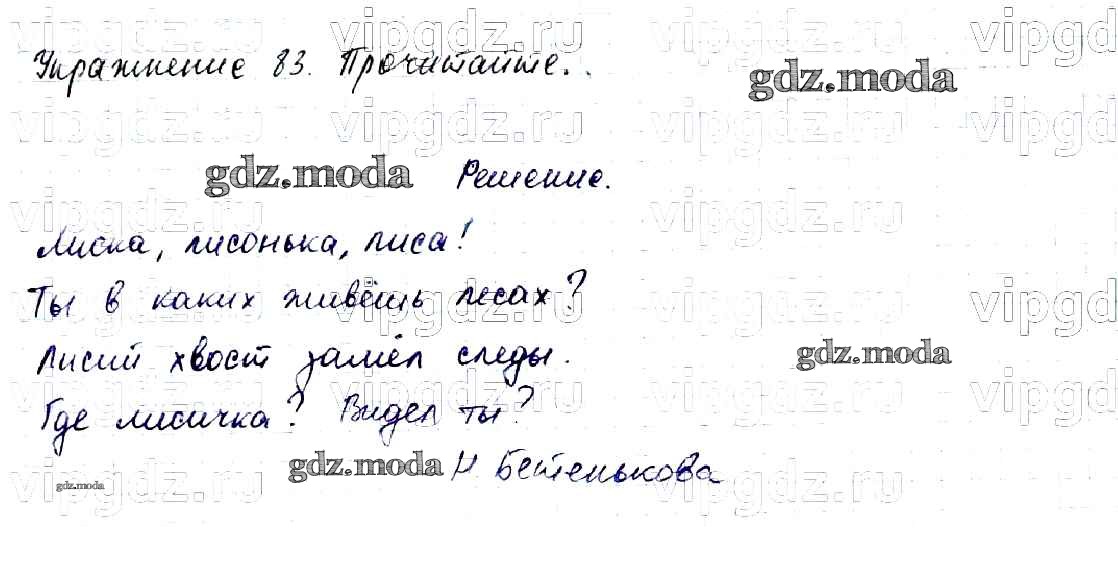 Упражнение 83. Прочитайте.
Решение.
Лиска, лисонька, лиса!
Ты в каких живёшь лесах?
Лисий хвост замёл следы.
Где лисичка? Видел ты?
Н Бетенькова
gdz.moda
gdz.moda
gdz.moda
gdz.moda
gdz.moda
vipgdz.ru